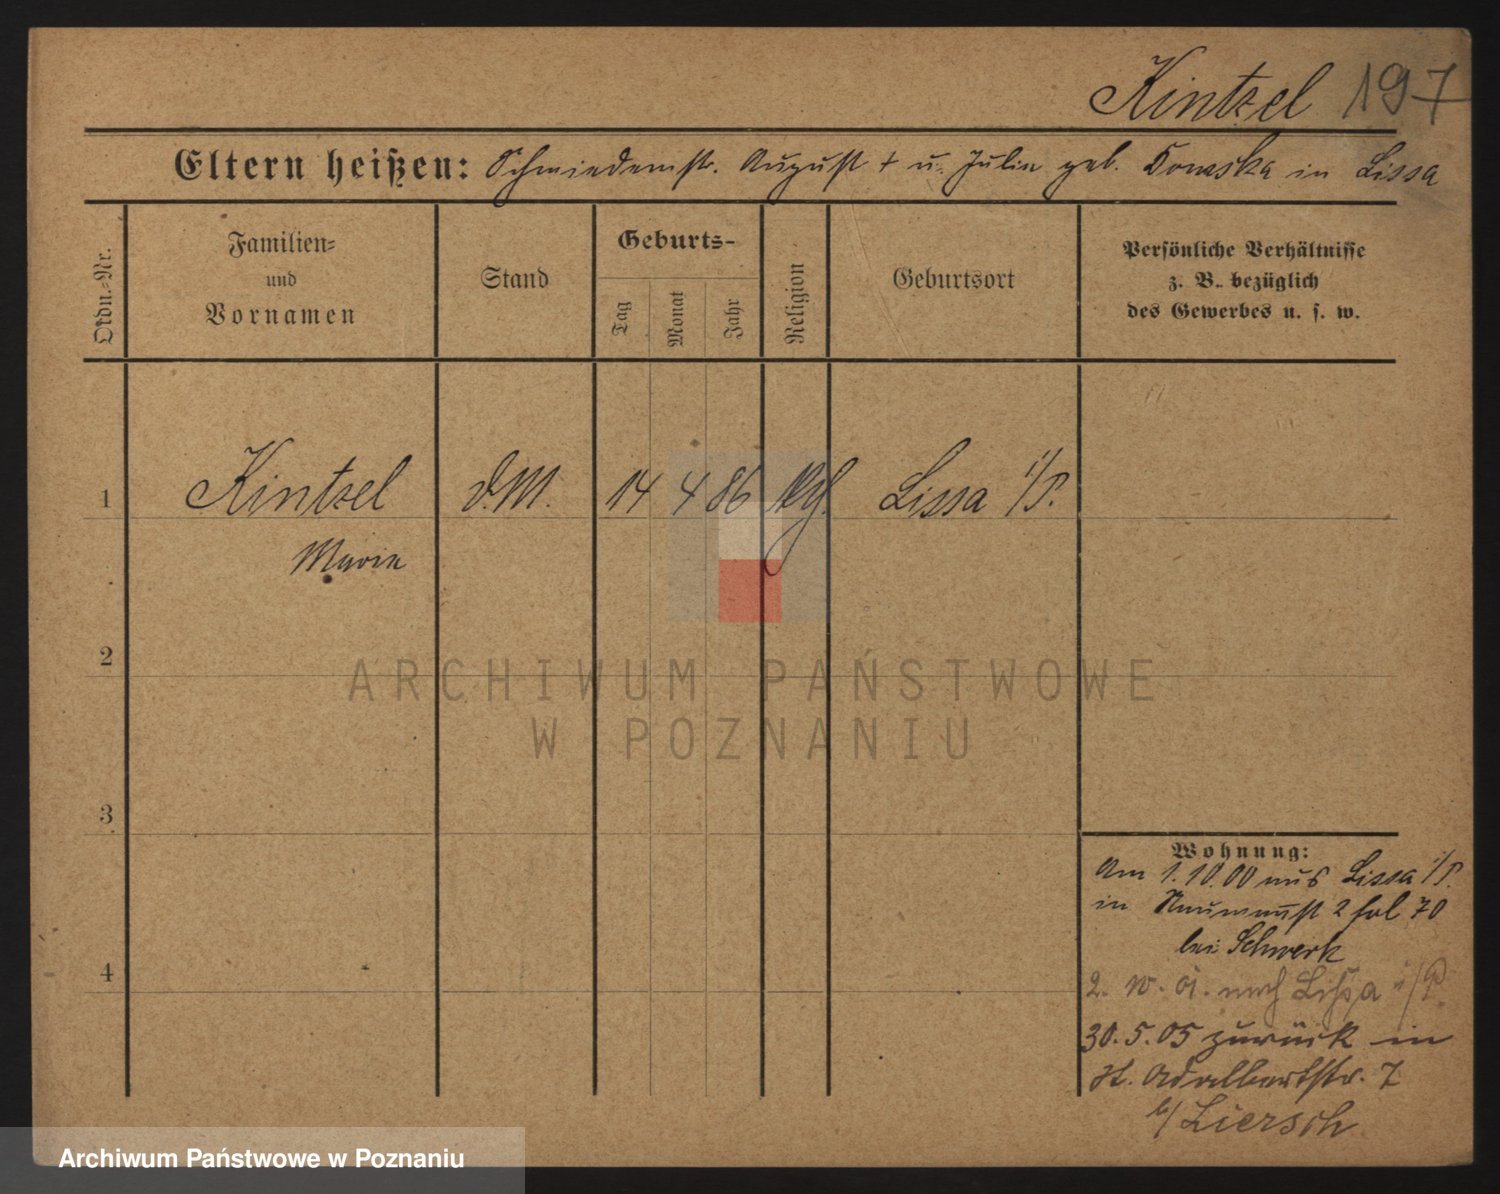 Kintzel 197
Eltern heißen: Schmiedemstr. August † u. Julie geb. Domska in Lissa
Ordn.-Nr.
Familien-
und
Vornamen
Stand
Geburts-
Tag
Monat
Jahr
Religion
Geburtsort
Persönliche Verhältnisse
z. B. bezüglich
des Gewerbes u. s. w.
1 Kintzel D.M. 14 4 86 Lissa i/P.
Marie
2
ARCHIWUM PAŃSTWOWE
W POZNANIU
3
Wohnung:
Am 1.10.00 aus Lissa i/P.
in 2 fol 70
bei Schwerk
2. 10. 01. nach Lissa i/P.
4
30.5.05 zurück in
St. Adalbertstr. 7
b/ Liersch
Archiwum Państwowe w Poznaniu